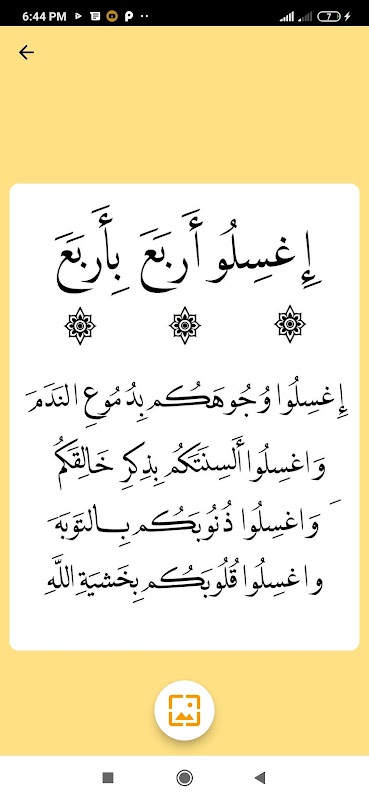 6:44 PM
7
إِغسِلُو أَربَعَ بِأَربَعَ
إِغسِلُوا وُجُوهَكُم بِدُمُوعِ النَدَمَ
وَاغسِلُوا أَلسِنَتَكُم بِذِكرِ خَالِقَكُم
وَاغسِلُوا ذُنُوبَكُم بِالتَوبَهَ
واغسِلُوا قُلُوبَكُم بِخَشيَةِ اللَّهِ